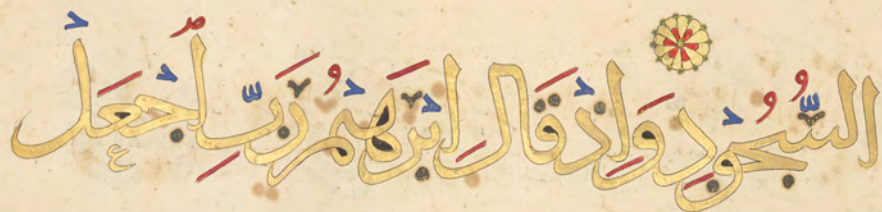 السُّجُودِ وَإِذْ قَالَ إِبْرَهِيمُ رَبِّ اجْعَلْ